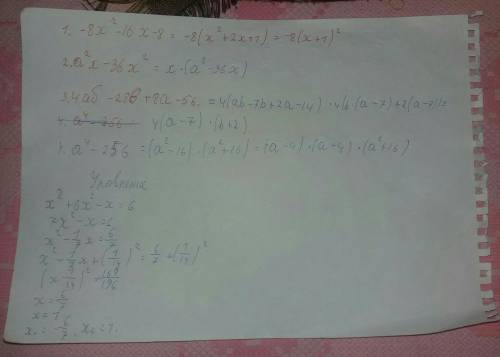 1. -8x²-16x-8 = -8(x²+2x+1) = -8(x+1)²
2. a²x-36x² = x·(a²-36x)
3. 4аб-28б+8а-56 = 4(ab-7b+2a-14) · 4(b·(a-7)+2(a-7))=
4. a⁴-256 4(a-7)·(b+2)
4. a⁴-256 = (a²-16)·(a²+16) = (a-4)·(a-4)·(a²+16)
x² + 6x² - x = 6
7x² - x = 6
x² - 1/7 x = 6/7
x² - 1/7 x + (1/14)² = 6/7 + (1/14)²
(x - 1/14)² = 169/196
x = 6/7
x = 1
x₁ = -6/7, x₂ = 1.